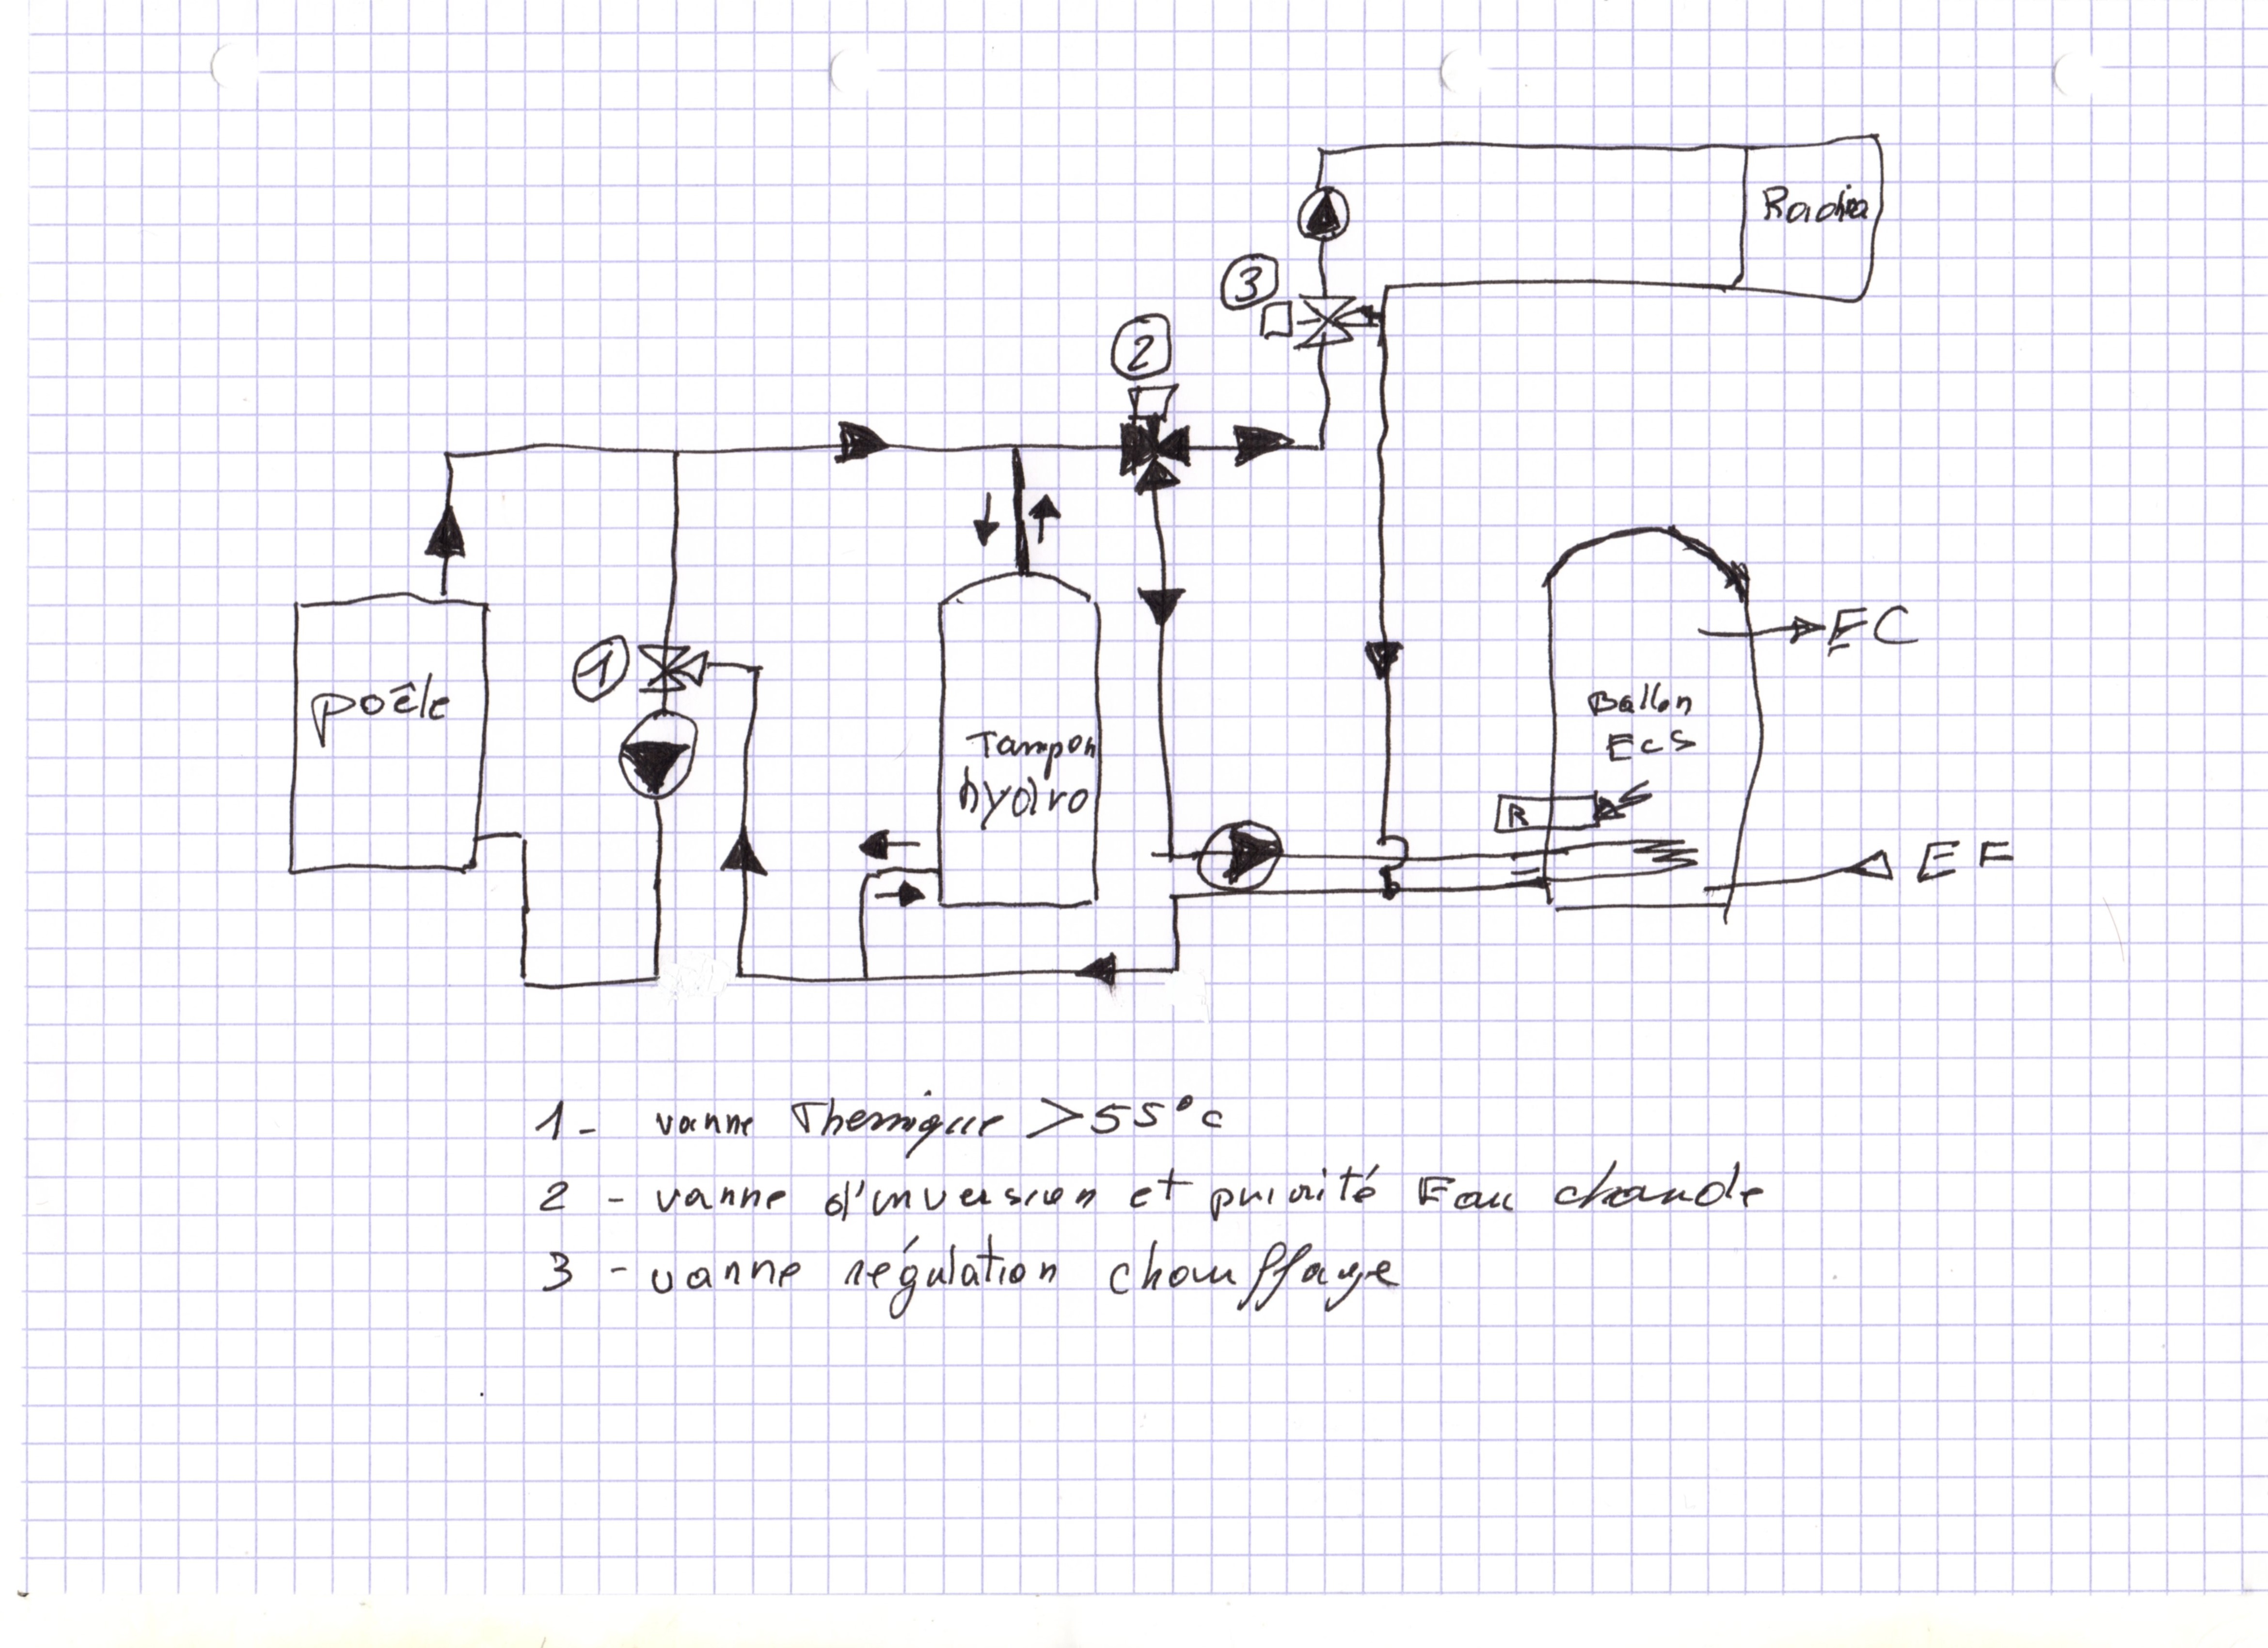 Radia
3
2
EC
1
poêle
Ballon
ECS
Tampon
hydro
R
EF
1 - vanne Thermique > 55°c
2 - vanne d'inversion et priorité Eau chaude
3 - vanne régulation chauffage